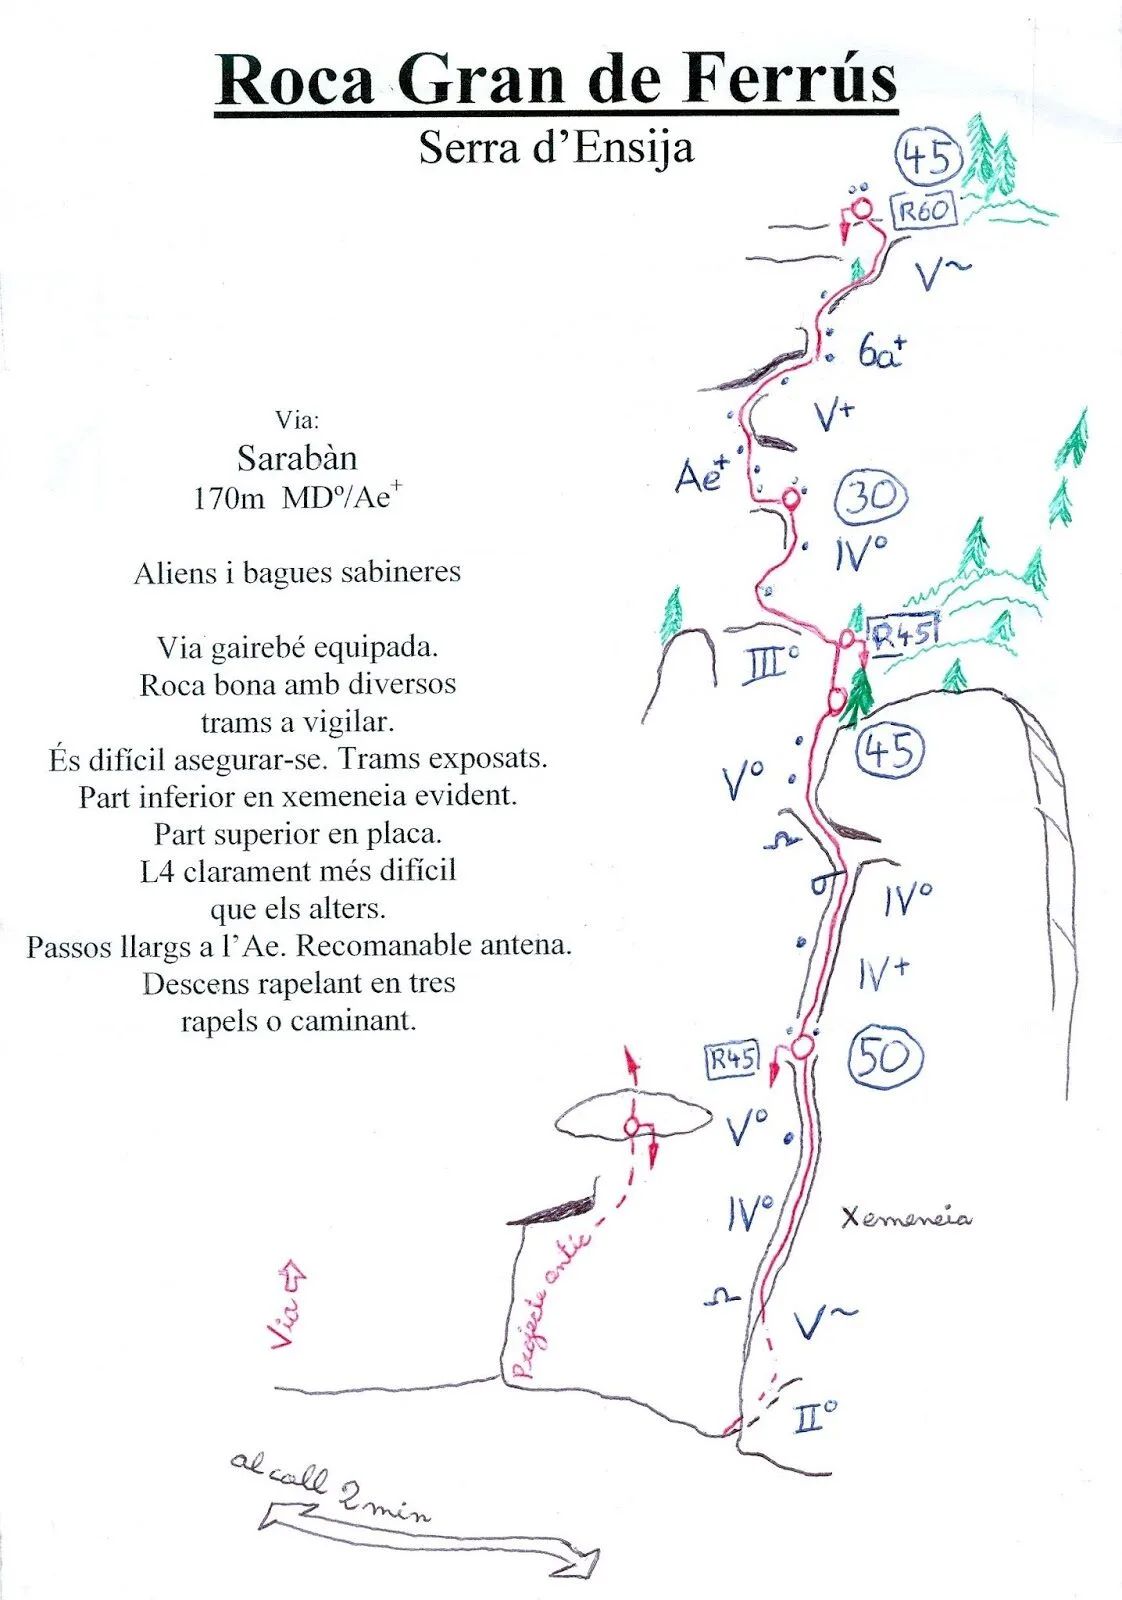 Roca Gran de Ferrús
Serra d'Ensija
45
R60
V~
6a+
V+
Via:
Sarabàn
170m MDº/Ae+
Ae+
30
IVº
Aliens i bagues sabineres
Via gairebé equipada.
Roca bona amb diversos
trams a vigilar.
És difícil asegurar-se. Trams exposats.
Part inferior en xemeneia evident.
Part superior en placa.
L4 clarament més difícil
que els alters.
Passos llargs a l'Ae. Recomanable antena.
Descens rapelant en tres
rapels o caminant.
R45
IIIº
45
Vº
IVº
IV+
R45
50
Vº
IVº
Xemeneia
V~
IIº
Projecte antic
Via
al coll 2 min